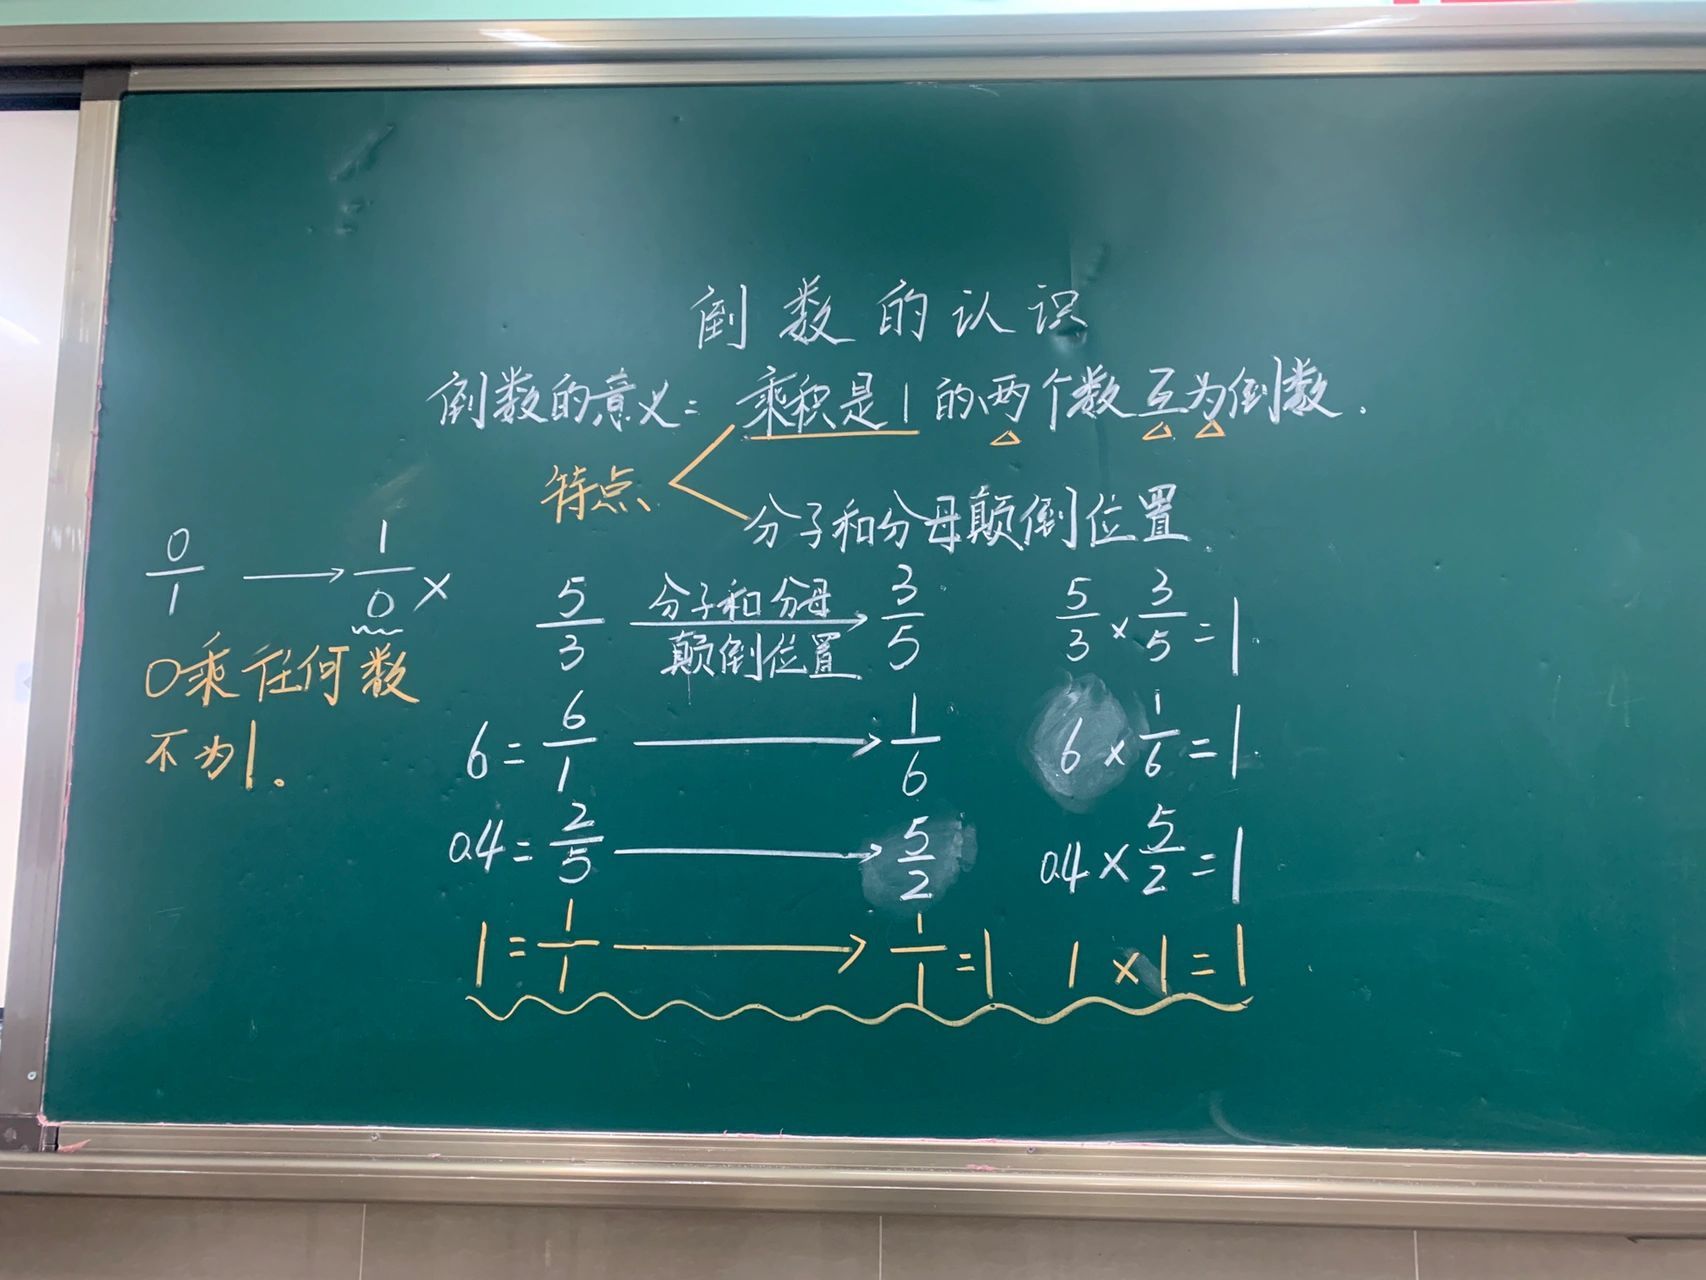 倒数的认识
倒数的意义：乘积是1的两个数互为倒数.
特点
分子和分母颠倒位置
0/1 → 1/0 ×
0乘任何数
不为1。
5/3 分子和分母颠倒位置 → 3/5 5/3 × 3/5 = 1.
6 = 6/1 → 1/6 6 × 1/6 = 1.
0.4 = 2/5 → 5/2 0.4 × 5/2 = 1
1 = 1/1 → 1/1 = 1 1 × 1 = 1